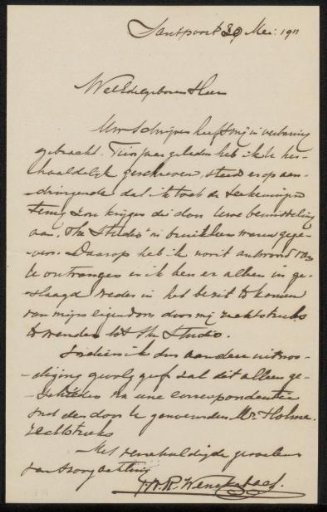 Santpoort 29 Mei. 1911
WelEdelgeboren Heer
Uw schrijven heeft mij in verbazing
gebracht. Tien jaar geleden heb ik U her-
haaldelijk geschreven, steeds er op aan-
dringende dat ik toch de teekeningen
terug zou krijgen die door Uwe bemiddeling
aan "The Studio" in bruikleen waren gege-
ven. Daarop heb ik nooit antwoord van U
te ontvangen en ik ben er alleen in ge-
slaagd weder in het bezit te komen
van mijn eigendom door mij rechtstreeks
te wenden tot The Studio.
Indien ik dus aan den uitnoo-
diging gevolg geef zal dit alleen ge-
schieden na eene correspondentie
met den door U genoemden Mr. Holme
rechtstreeks
Met verschuldigde gevoelens
van hoogachting